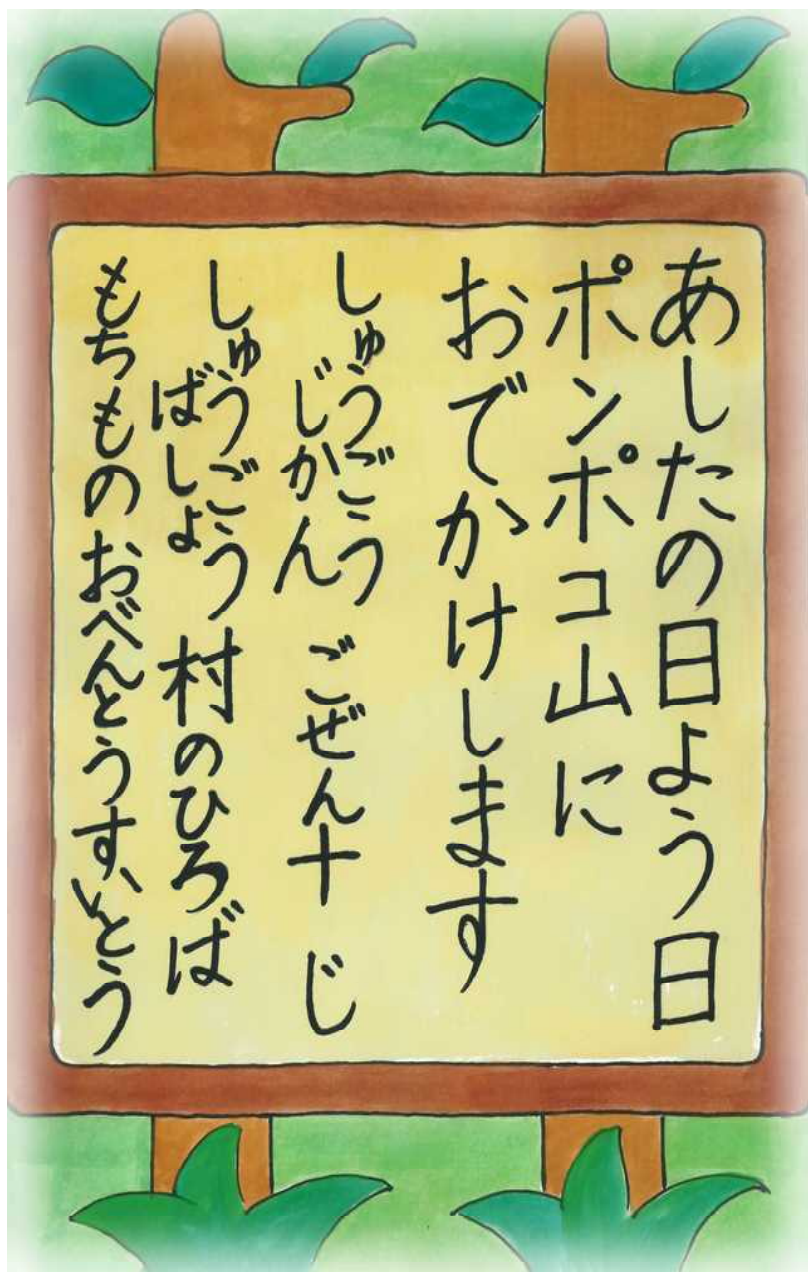 あしたの日よう日
ポンポコ山に
おでかけします
しゅうごう
じかん ごぜん十じ
しゅうごう
ばしょ 村のひろば
もちもの おべんとうすいとう